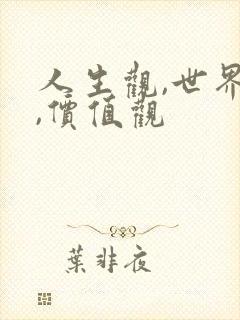 人生觀,世界
,價值觀
葉非夜